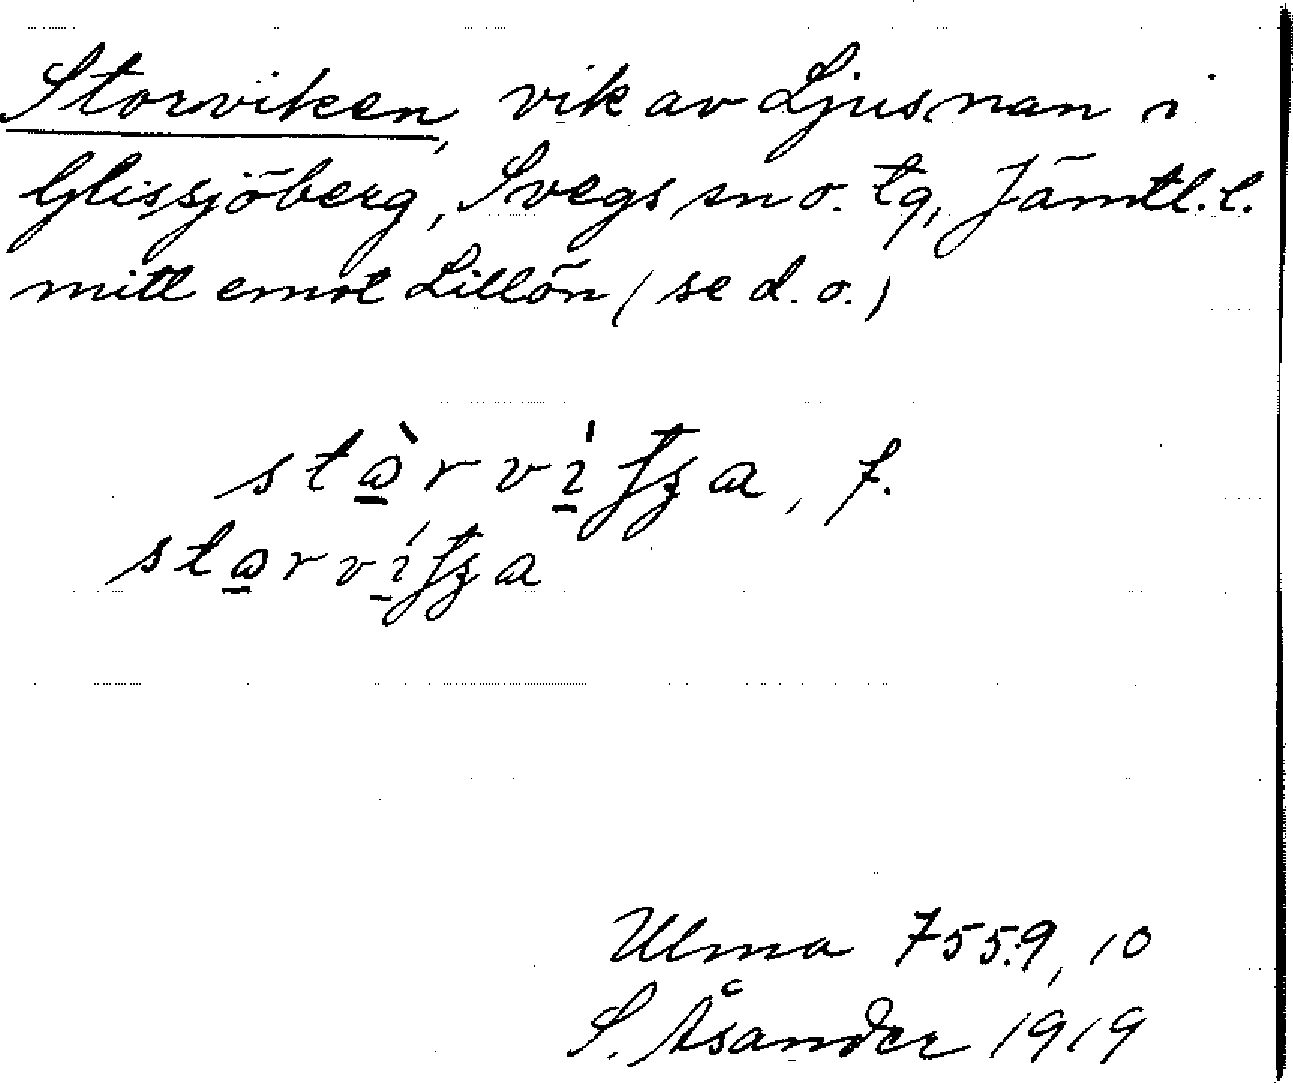 Storviken, vik av Ljusnan i
Glissjöberg, Svegs sn o. tg, Jämtl. l.
mitt emot Lillön (se d. o.)
f.
Ulma 7559, 10
S. Åsander 1919